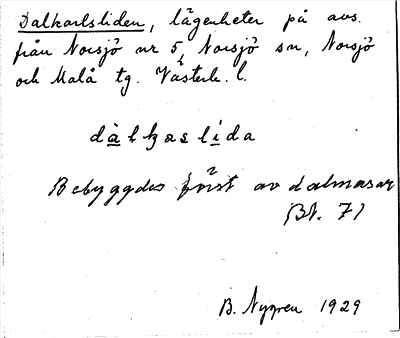 Dalkarlsliden, lägenheter på avs.
från Norsjö nr 5, Norsjö sn, Norsjö
och Malå tg. Västerb. l.
dàlkaslída
Bebyggdes först av dalmasar
BN. 71
B. Nygren 1929